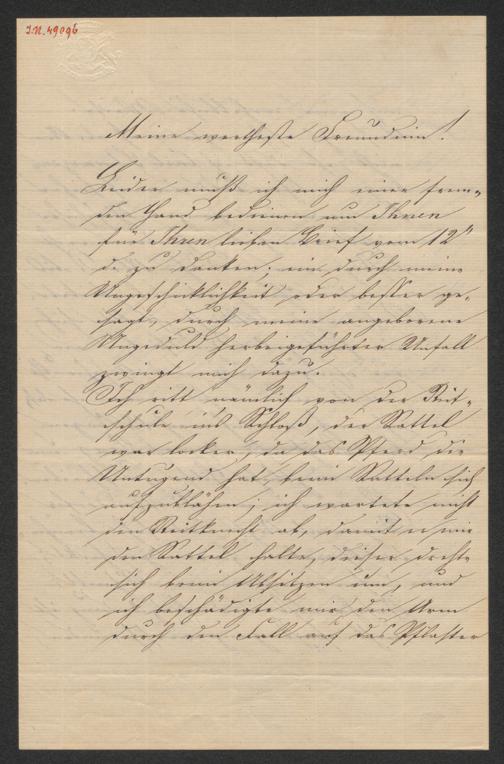 I.N. 49096
Meine wertheste Freundinn!
Leider muß ich mich einer frem-
den Hand bedienen um Ihnen
für Ihren lieben Brief vom 12t
d. zu danken; ein durch meine
Ungeschicklichkeit oder besser ge-
sagt, durch meine angeborene
Ungeduld herbeigeführter Unfall
zwingt mich dazu.
Ich ritt nämlich von der Reit-
schule in's Schloß, der Sattel
war locker, da das Pferd die
Untugend hat, beim Satteln sich
aufzublähen; ich wartete nicht
den Reitknecht ab, damit er mir
den Sattel halte, dieser drehte
sich beim Absitzen um, und
ich beschädigte mir den Arm
durch den Fall auf das Pflaster